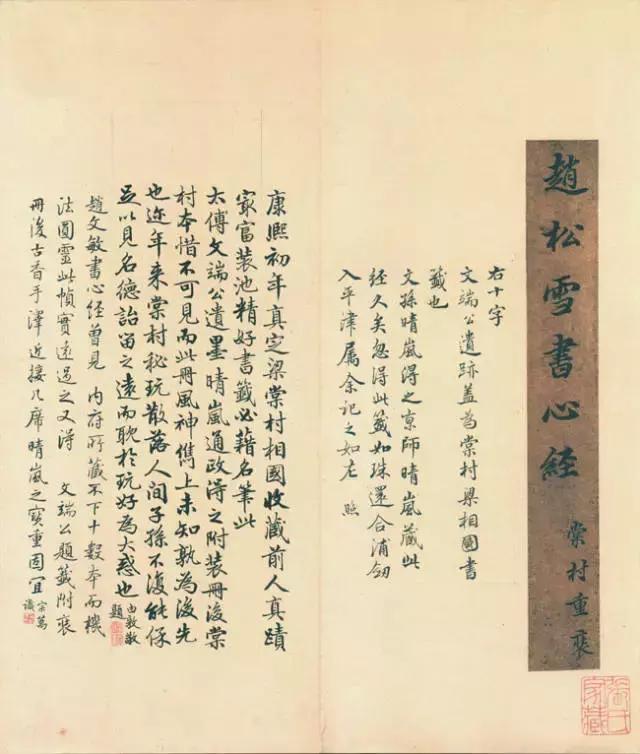 趙松雪書心經
棠村重裝
右十字
文端公遺跡蓋為棠村梁相國書
籤也
文孫晴嵐得之京師晴嵐藏此
經久矣忽得此籤如珠還合浦劒
入平津屬余記之如左 照
康熙初年真定梁棠村相國收藏前人真蹟
家富裝池精好書籤必藉名筆此
太傅文端公遺墨晴嵐通政得之附裝冊後棠
村本惜不可見而此冊風神儁上未知孰為後先
也近年来棠村秘玩散落人間子孫不復能保
足以見名德詒留之遠而耽於玩好為大惑也
由敦敬
題
趙文敏書心經曾見 内府所藏不下十數本而機
法圓靈此幀實遠過之又得 文端公題籤附裝
冊後古香手澤近接几席晴嵐之寳重固宜
宗萬
識